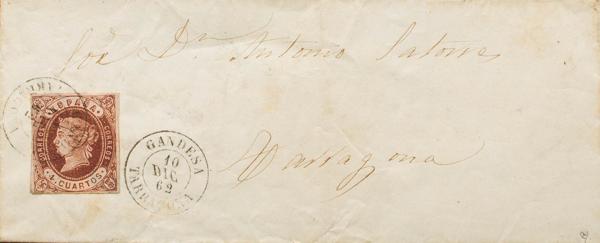 Sor Dn Antonio Satorres
Tarragona
ESPAÑA
CORREOS
CORREOS
4 CUARTOS
GANDESA
10
DIC
62
TARRAGONA